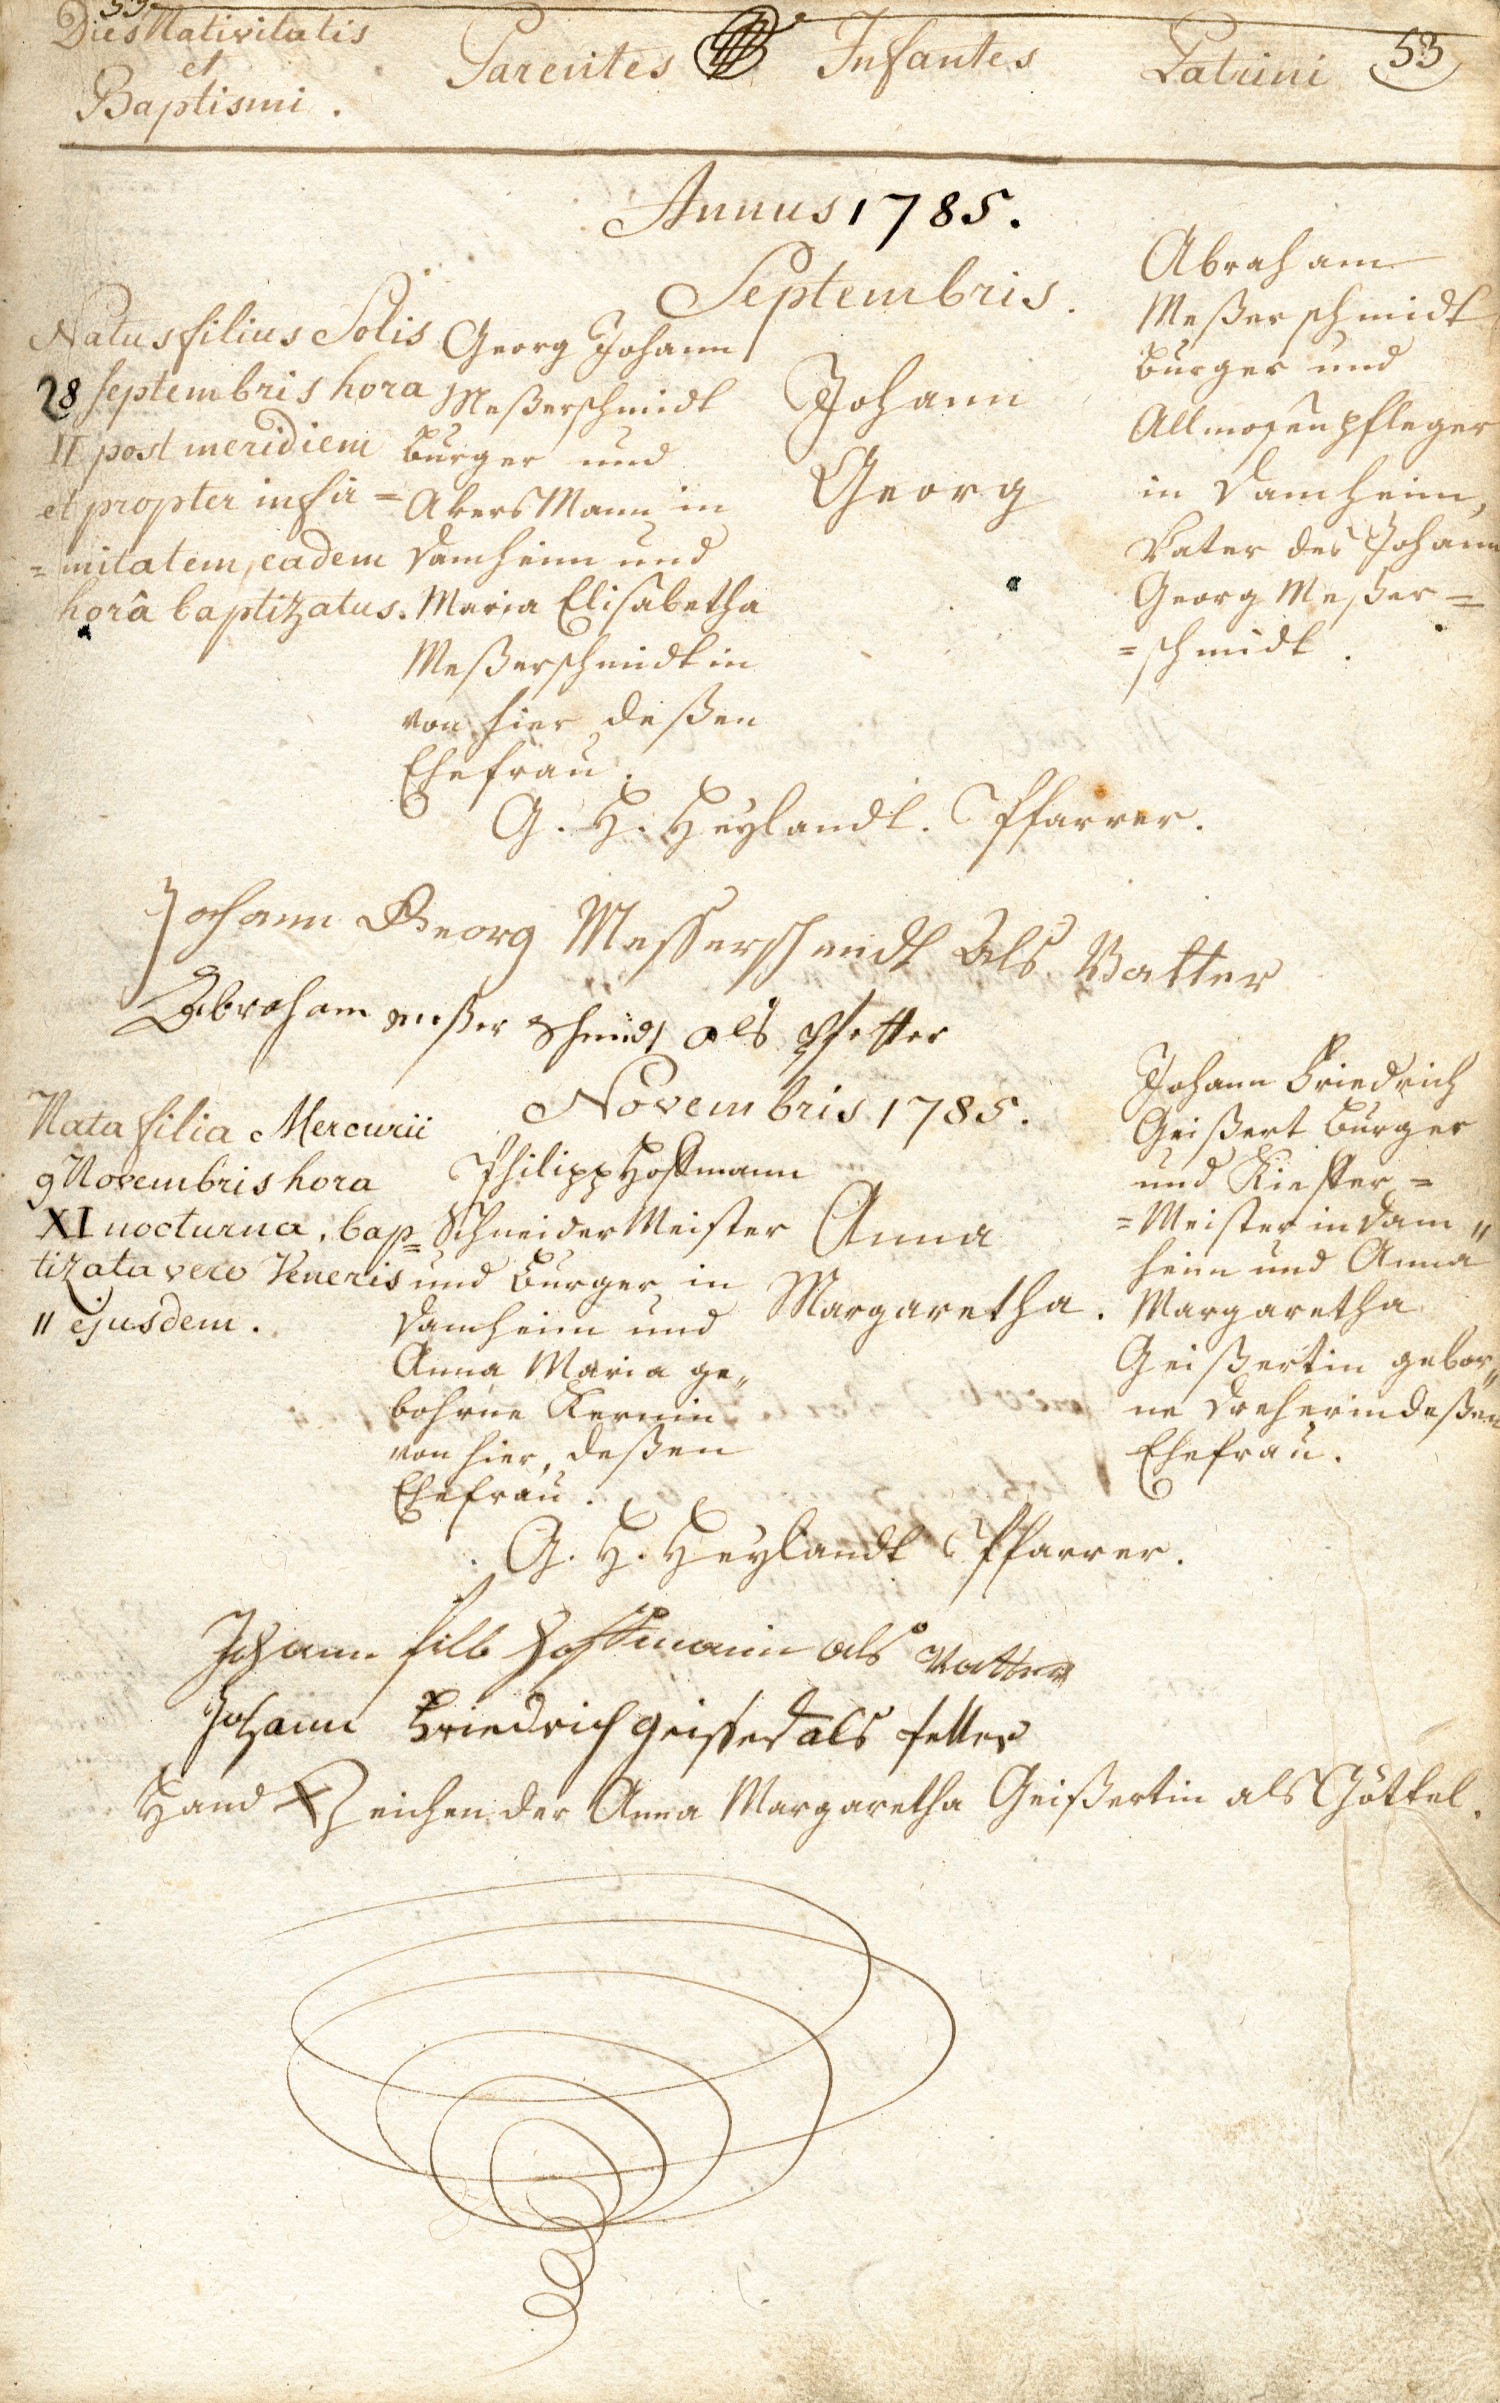 Dies Nativitatis
et
Baptismi.
Parentes
Infantes
Patrini
53
Annus 1785.
Septembris.
Natus filius Solis
28 septembris hora
II post meridiem
et propter infir=
=mitatem, eadem
horâ baptizatus.
Georg Johann
Meßerschmidt
burger und
AkersMann in
Damheim und
Maria Elisabetha
Meßerschmidtin
von hier deßen
Ehefrau.
Johann
Georg
Abraham
Meßerschmidt
burger und
Allmosenpfleger
in Damheim,
Vater des Johann
Georg Meßer=
=schmidt.
G. H. Heylandt. Pfarrer.
Johann Georg Messerschmidt Als Vatter
Abraham meßer Schmidt als Pfetter
Novembris 1785.
Nata filia Mercurii
9 Novembris hora
XI nocturna, bap=
tizata vero Veneris
11 ejusdem.
Philipp Hoffmann
Schneider Meister
und Burger in
Damheim und
Anna Maria ge„
bohrne Kernin
von hier, deßen
Ehefrau.
Anna
Margaretha.
Johann Friedrich
Geißert Burger
und Kieffer=
=Meister in Dam„
heim und Anna
Margaretha
Geißertin gebor„
ne Dreherin deßen
Ehefrau.
G. H. Heylandt Pfarrer.
Johann filb Hoffmann als Vatter
Johann Friedrich geissert als fetter
Hand X Zeichen der Anna Margaretha Geißertin als Göttel.